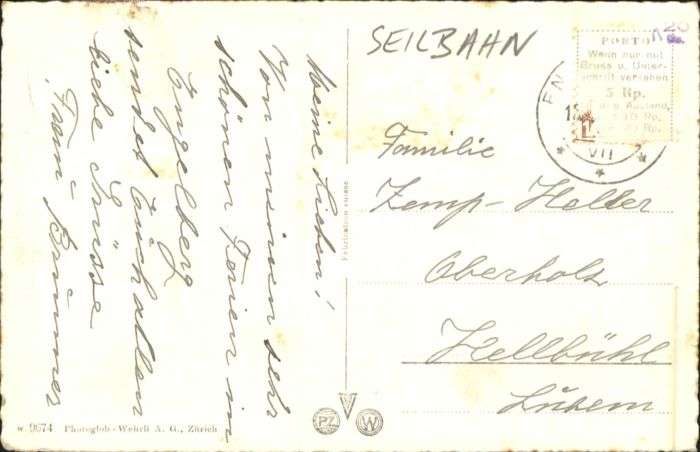 SEILBAHN
Meine Lieben!
Von meinen sehr
schönen Ferien in
Engelberg
sendet Euch allen
liebe Grüsse
Frau Brunner
Familie
Zemp-Haller
Oberholz
Hellbühl
Luzern
PORTO
Wenn nur mit
Gruss u. Unter-
schrift versehen
5 Rp.
Ausland,
10 Rp.
Rp.
20
EN
VII
Fabrication suisse
PZ
W
W. 9674 Photoglob-Wehrli A. G., Zürich